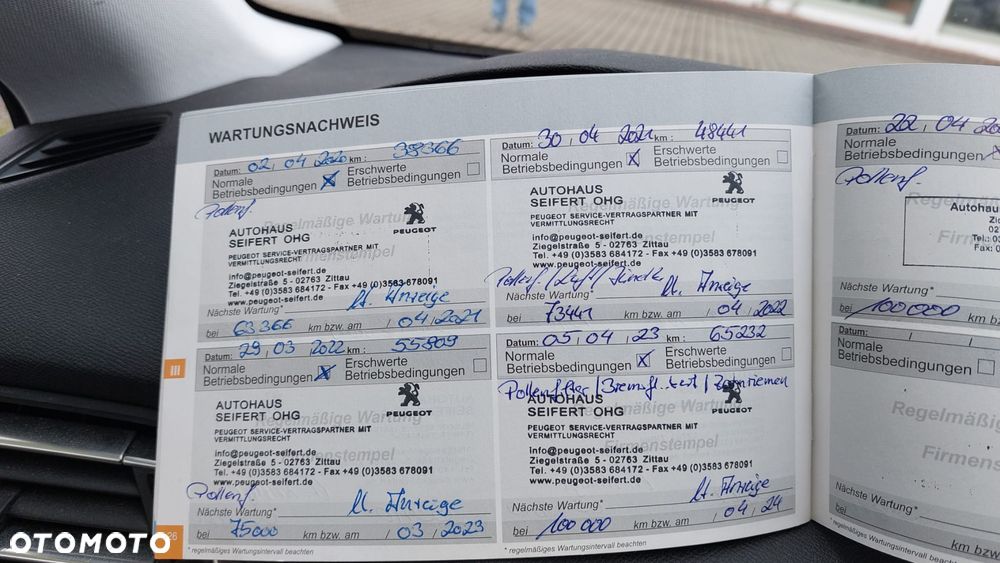 WARTUNGSNACHWEIS
Datum: 02, 04 2020 km: 38366
Normale Betriebsbedingungen X Erschwerte Betriebsbedingungen
Pollenf.
Regelmäßige Wartung
Firmenstempel
AUTOHAUS
SEIFERT OHG
PEUGEOT
PEUGEOT SERVICE-VERTRAGSPARTNER MIT
VERMITTLUNGSRECHT
info@peugeot-seifert.de
Ziegelstraße 5 - 02763 Zittau
Tel. +49 (0)3583 684172 - Fax +49 (0)3583 678091
www.peugeot-seifert.de
Nächste Wartung* lt. Anzeige
bei 63366 km bzw. am / 04 / 2021
Datum: 30, 04 2021 km: 48441
Normale Betriebsbedingungen X Erschwerte Betriebsbedingungen
Regelmäßige Wartung
AUTOHAUS
SEIFERT OHG
PEUGEOT
PEUGEOT SERVICE-VERTRAGSPARTNER MIT
VERMITTLUNGSRECHT
info@peugeot-seifert.de
Ziegelstraße 5 - 02763 Zittau
Tel. +49 (0)3583 684172 - Fax +49 (0)3583 678091
www.peugeot-seifert.de
Pollenf./Luftf/
Nächste Wartung* lt. Anzeige
bei 73441 km bzw. am / 04 / 2022
Datum: 29, 03 2022 km: 55809
Normale Betriebsbedingungen X Erschwerte Betriebsbedingungen
Regelmäßige Wartung
Firmenstempel
AUTOHAUS
SEIFERT OHG
PEUGEOT
PEUGEOT SERVICE-VERTRAGSPARTNER MIT
VERMITTLUNGSRECHT
info@peugeot-seifert.de
Ziegelstraße 5 - 02763 Zittau
Tel. +49 (0)3583 684172 - Fax +49 (0)3583 678091
www.peugeot-seifert.de
Pollenf.
Nächste Wartung* lt. Anzeige
bei 75000 km bzw. am / 03 / 2023
* regelmäßiges Wartungsintervall beachten
Datum: 05, 04, 23 km: 65232
Normale Betriebsbedingungen X Erschwerte Betriebsbedingungen
Pollenfilter/Bremsfl. test/Zahnriemen
Regelmäßige Wartung
Firmenstempel
AUTOHAUS
SEIFERT OHG
PEUGEOT
PEUGEOT SERVICE-VERTRAGSPARTNER MIT
VERMITTLUNGSRECHT
info@peugeot-seifert.de
Ziegelstraße 5 - 02763 Zittau
Tel. +49 (0)3583 684172 - Fax +49 (0)3583 678091
www.peugeot-seifert.de
Nächste Wartung* lt. Anzeige
bei 100000 km bzw. am / 04 / 24
* regelmäßiges Wartungsintervall beachten
Datum: 22, 04
Normale
Betriebsbedingungen
Pollenf.
Autohau
Tel.:
Fax:
Firmen
Nächste Wartung*
bei 100000 km b
Datum:
Normale
Betriebsbedingungen
Regelmäßig
Firmenst
Nächste Wartung*
bei km bzw
* regelmäßiges Wartungsintervall beachten
III
26
OTOMOTO